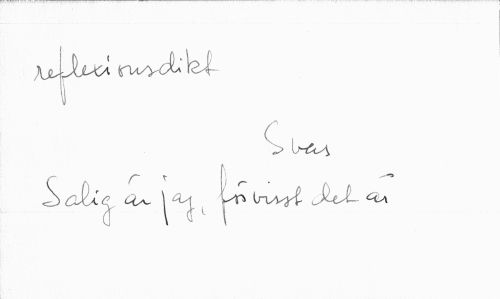 reflexionsdikt
Svar
Salig är jag, förvisst det är